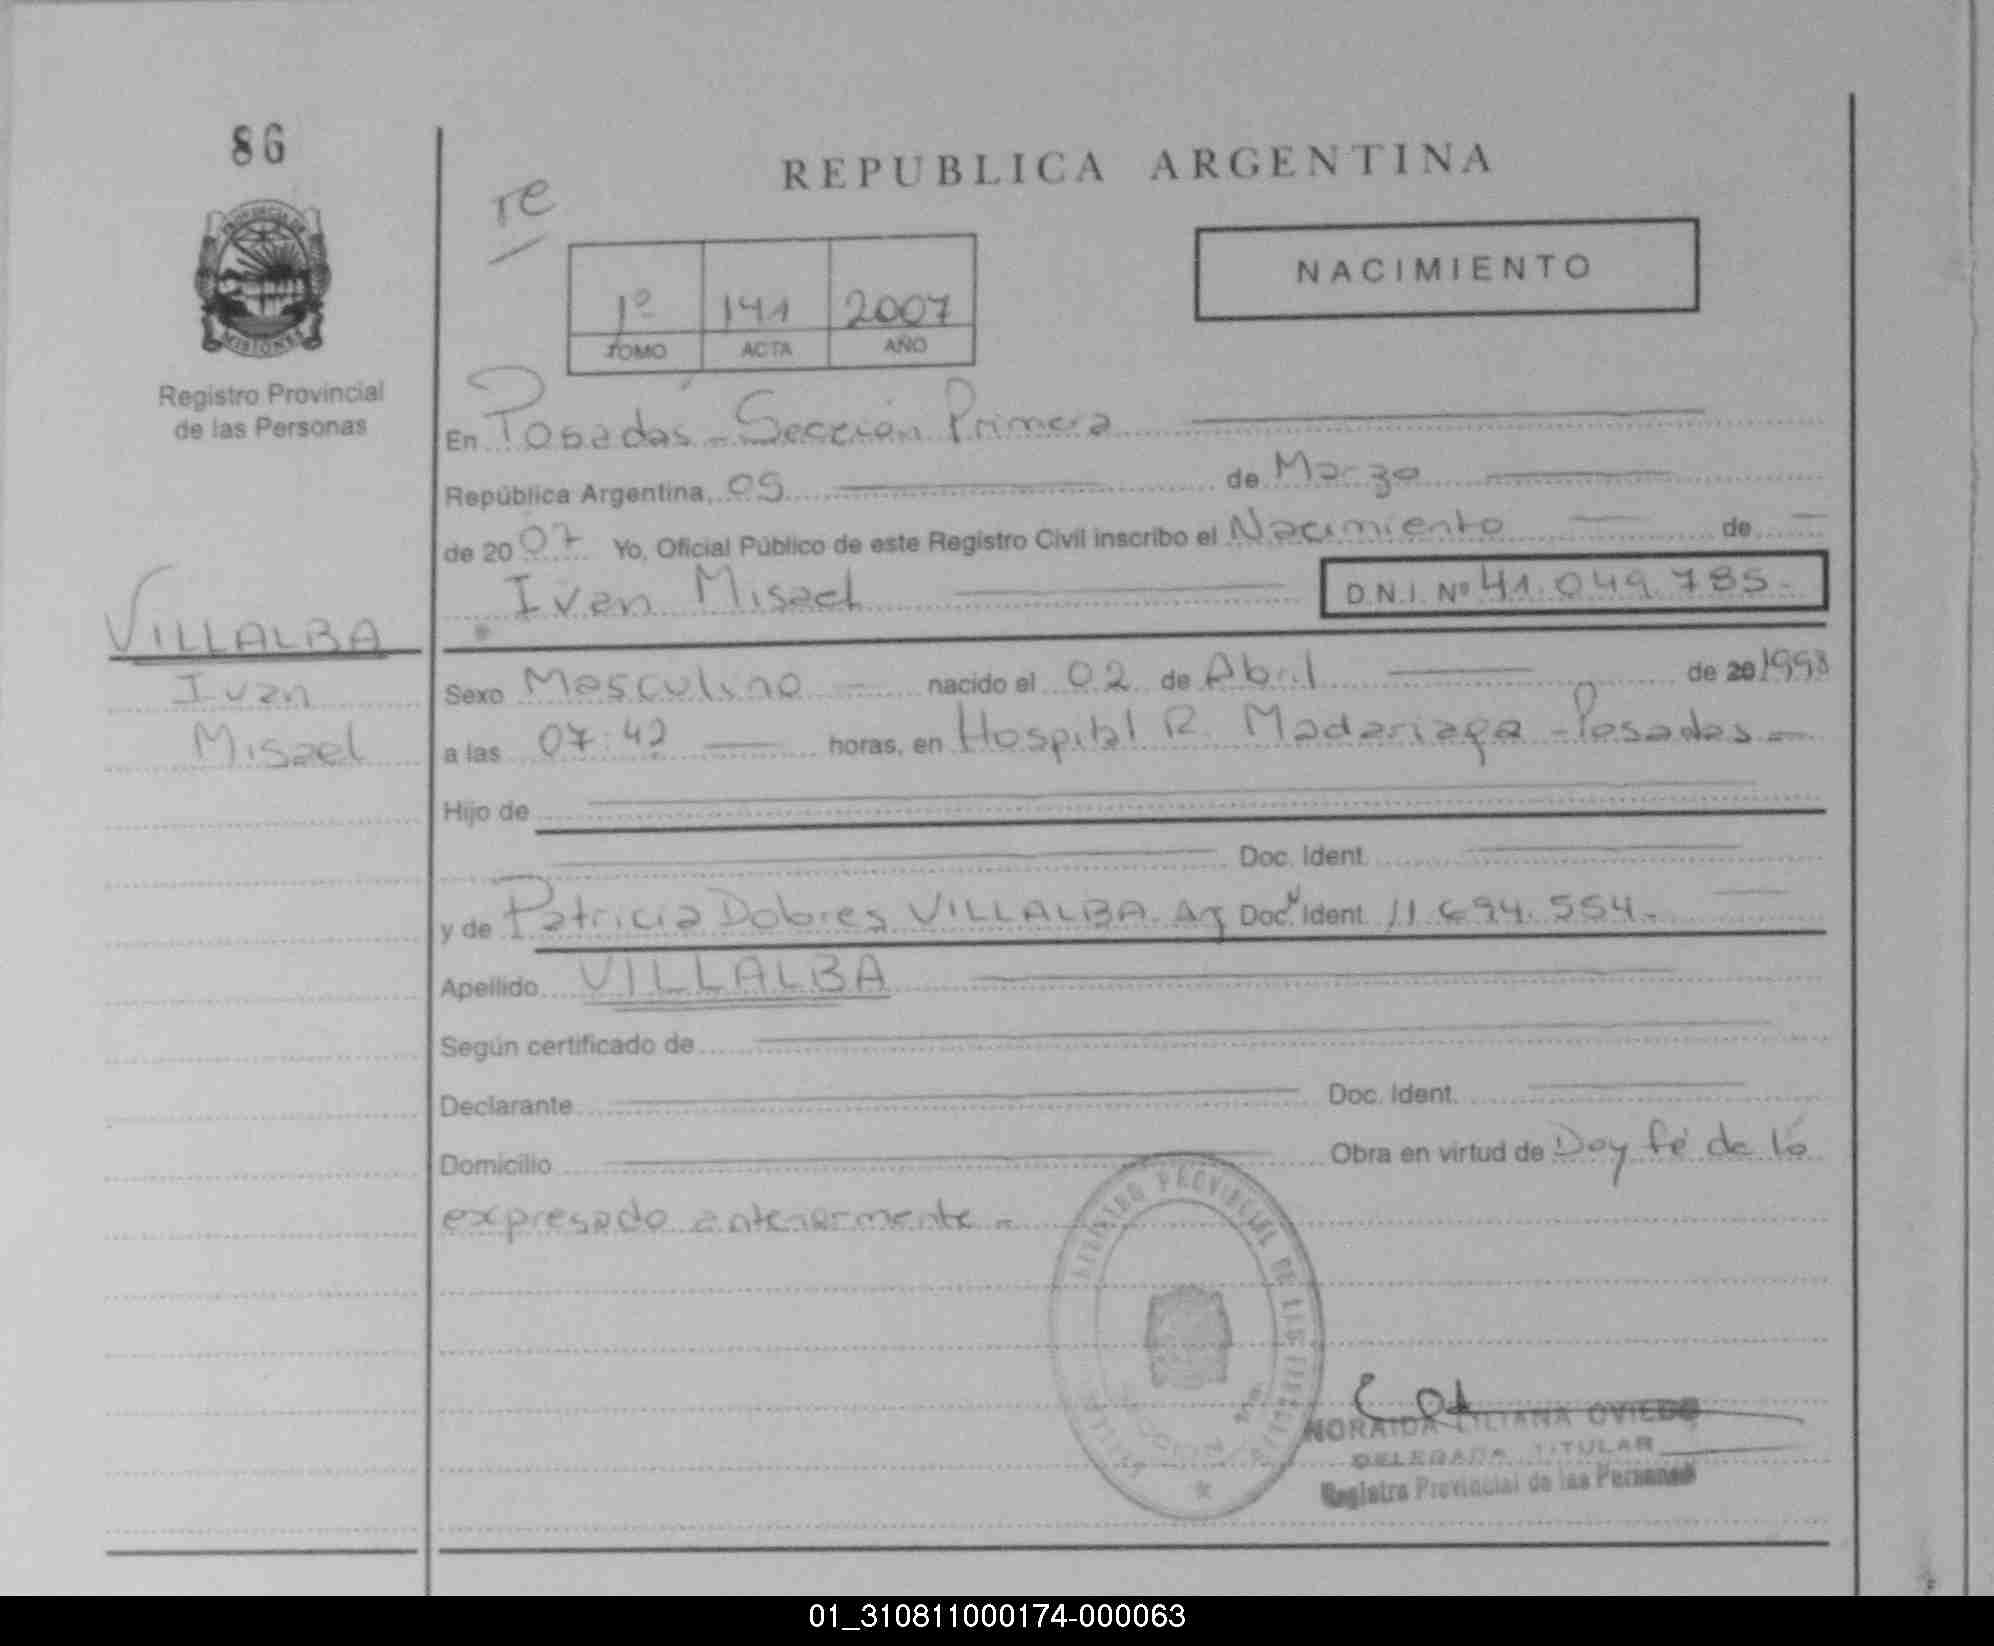 86
REPUBLICA ARGENTINA
re
PROVINCIA DE
MISIONES
NACIMIENTO
1º 141 2007
TOMO ACTA AÑO
Registro Provincial
de las Personas
En Posadas - Sección Primera
República Argentina, 05 de Marzo
de 20 07 Yo, Oficial Público de este Registro Civil inscribo el Nacimiento de
Ivan Misael D.N.I. Nº 41.049.785.-
VILLALBA
Ivan
Misael
Sexo Masculino nacido el 02 de Abril de 20 1998
a las 07:42 horas, en Hospital R. Madariaga - Posadas -
Hijo de
Doc. Ident.
y de Patricia Dolores VILLALBA Arg Doc. Ident. 11.694.554.-
Apellido VILLALBA
Según certificado de
Declarante Doc. Ident.
Domicilio Obra en virtud de Doy fé de lo
expresado anteriormente -
REGISTRO PROVINCIAL DE LAS PERSONAS
NORAIDA LILIANA OVIEDO
DELEGADA TITULAR
Registro Provincial de las Personas
01_310811000174-000063